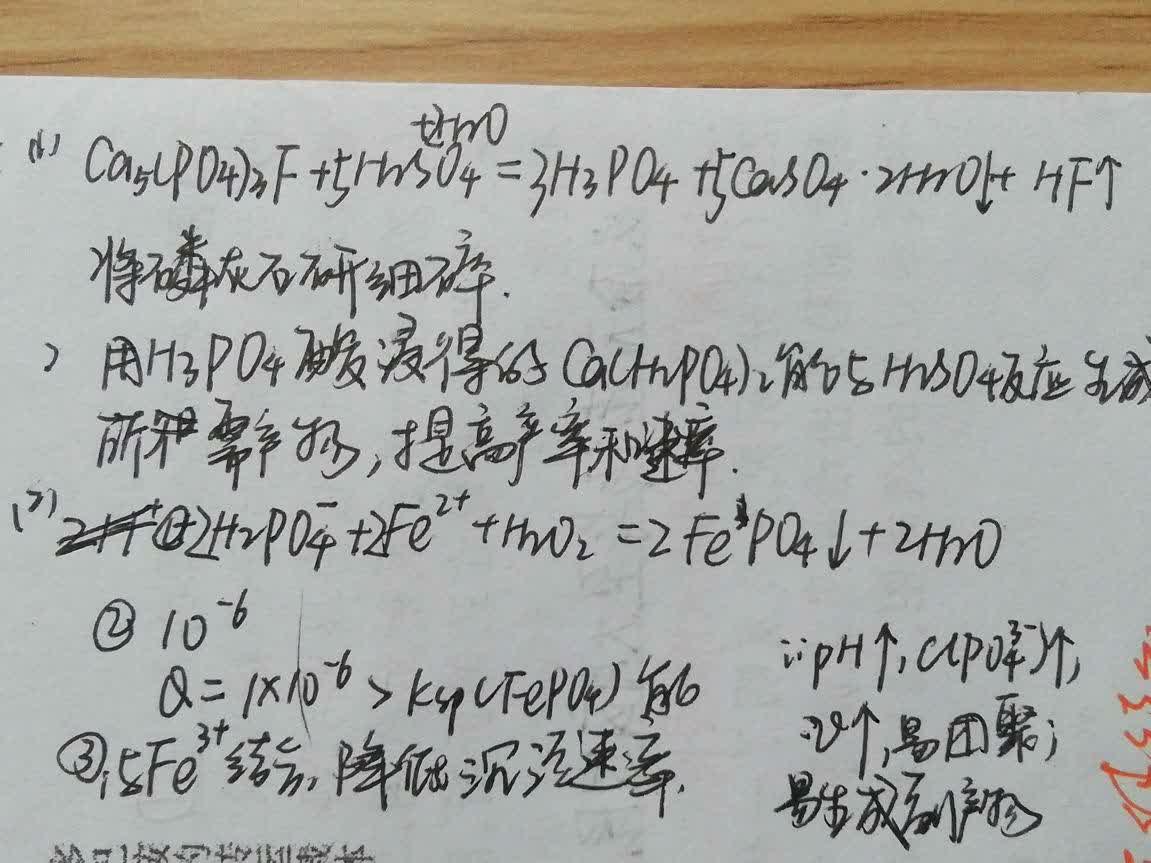 (1) Ca₅(PO₄)₃F + 5H₂SO₄ +H₂O = 3H₃PO₄ + 5CaSO₄·2H₂O↓ + HF↑
将磷灰石研细碎.
用H₃PO₄酸浸得的Ca(H₂PO₄)₂能与H₂SO₄反应生成
所需产物,提高产率和速率.
(2) ①2H₂PO₄⁻ + 2Fe²⁺ + H₂O₂ = 2FePO₄↓ + 2H₂O
② 10⁻⁶
Q = 1×10⁻⁶ > Ksp(FePO₄) 能
③ 与Fe³⁺结合,降低沉淀速率.
∵pH↑, c(PO₄³⁻)↑,
∴v↑,易团聚;
易生成副产物